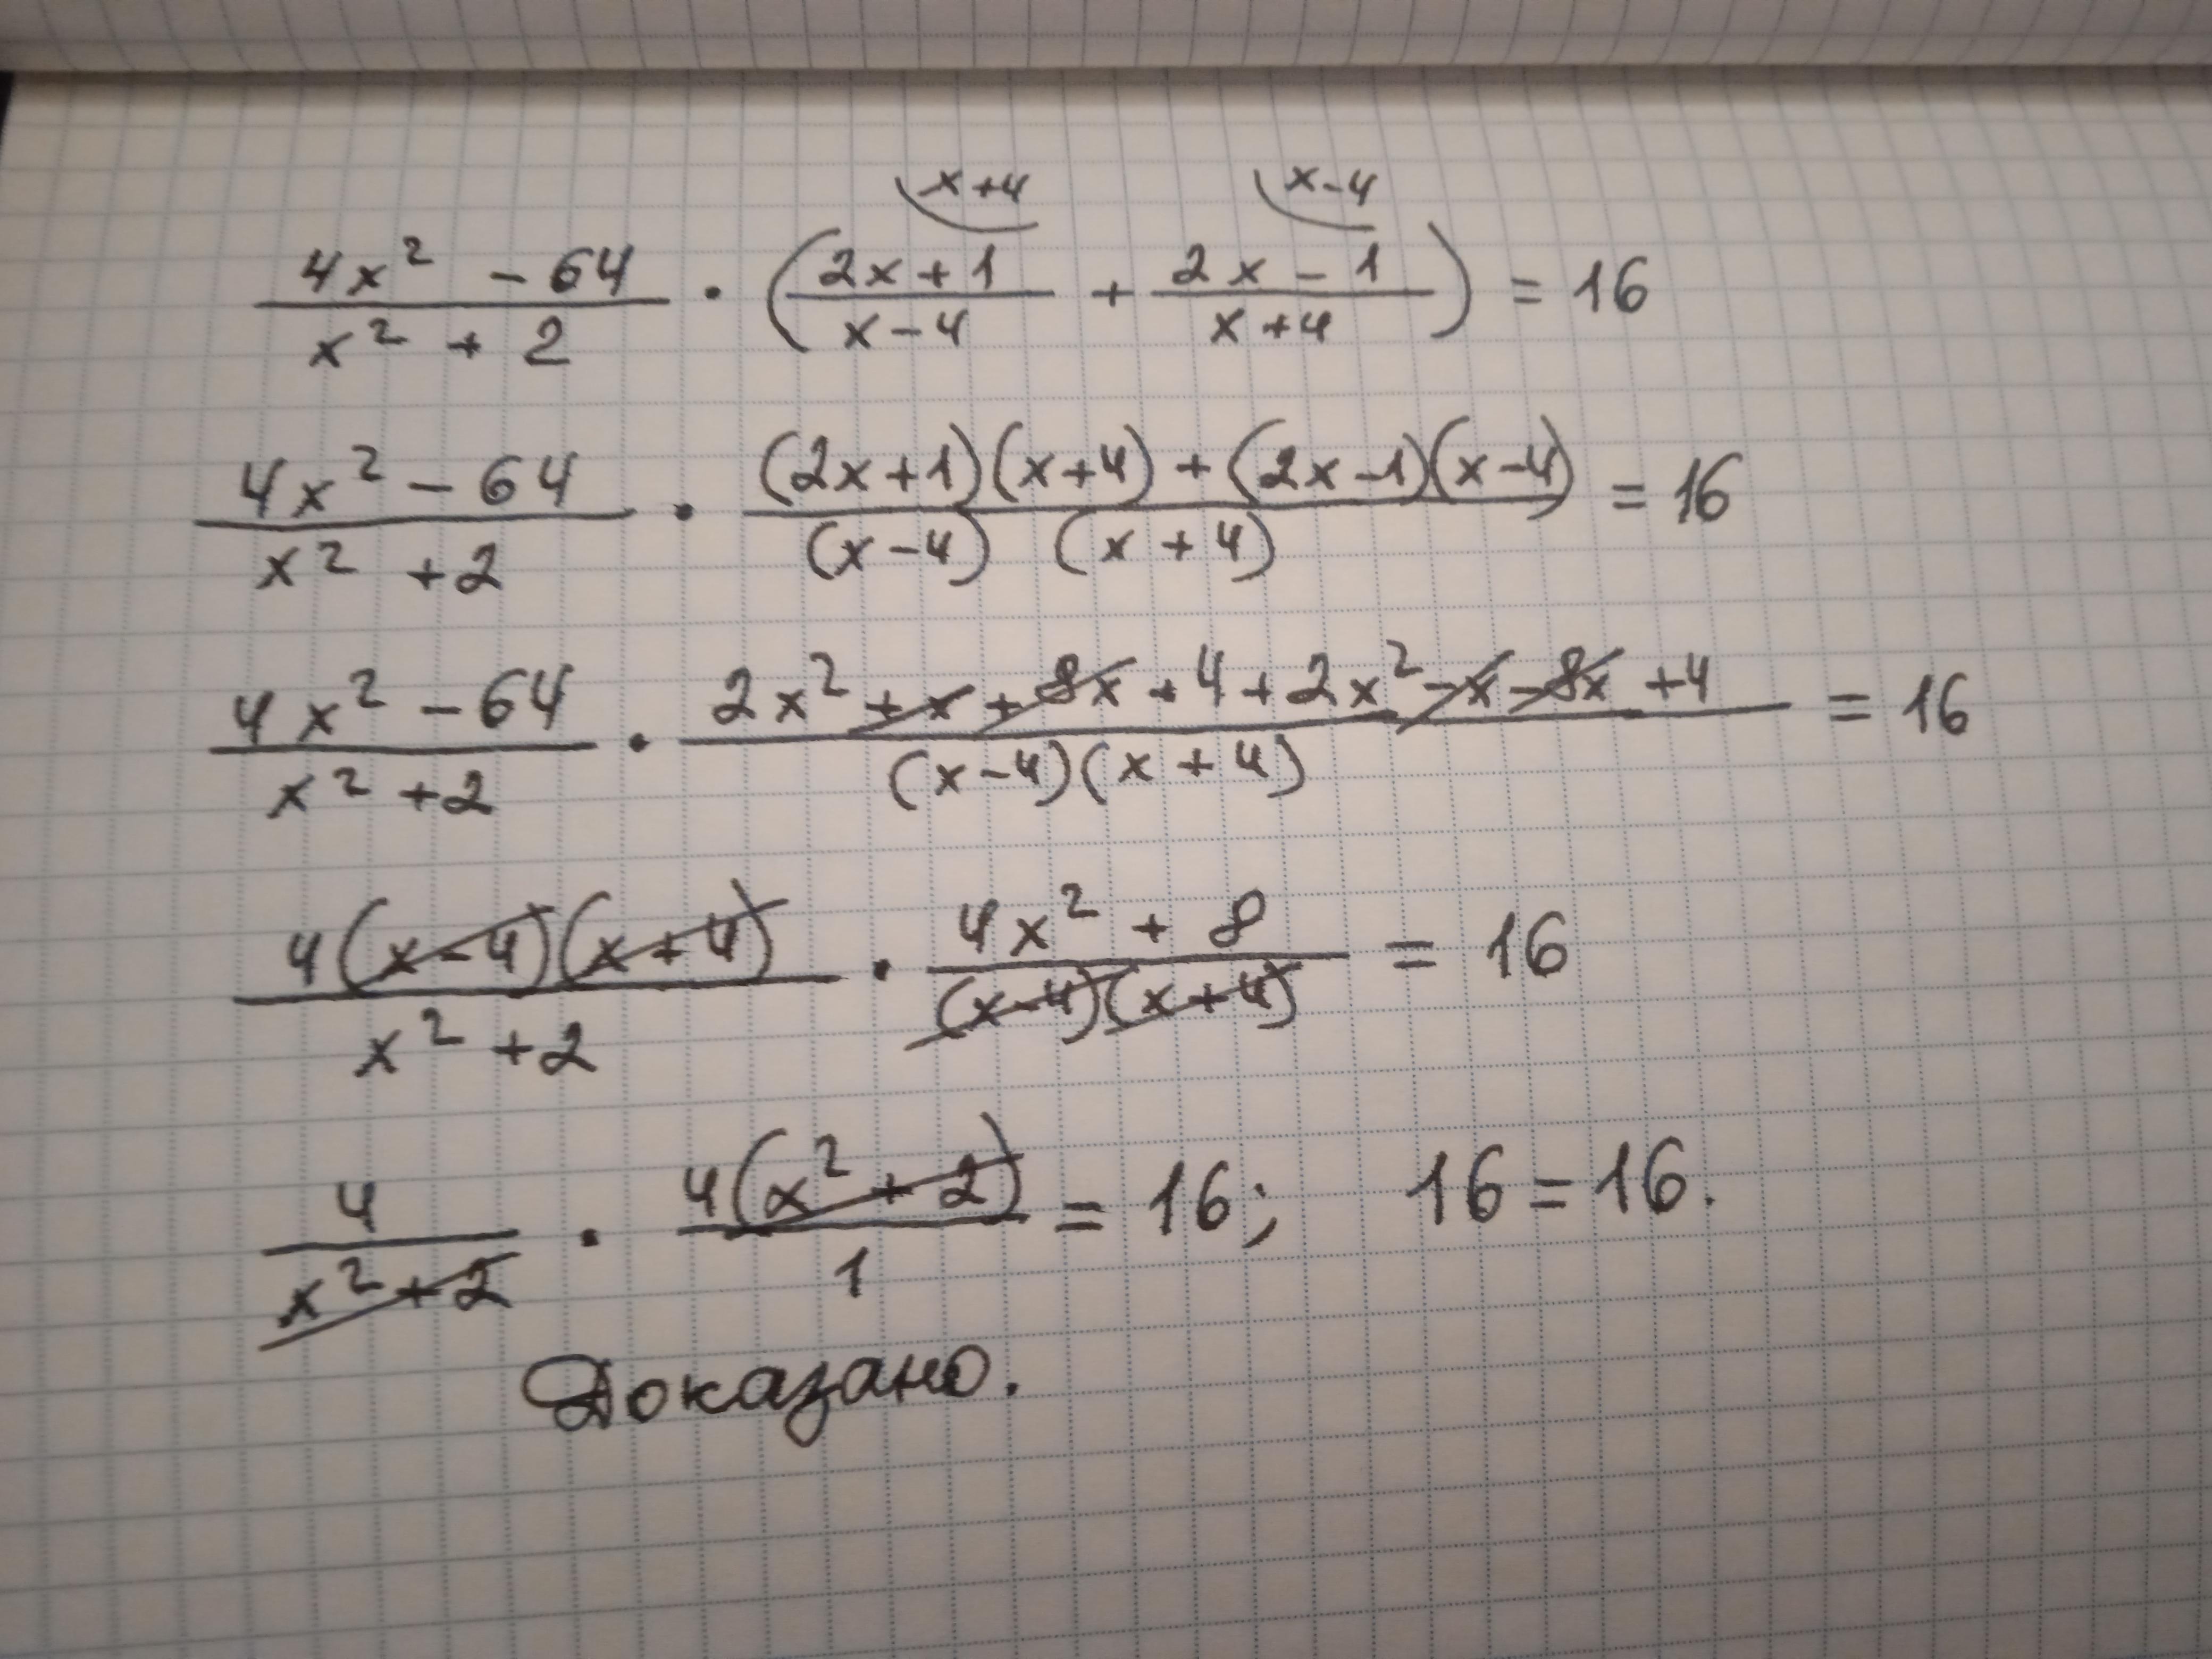 x+4 x-4
(4x² - 64)/(x² + 2) · ((2x+1)/(x-4) + (2x-1)/(x+4)) = 16
(4x² - 64)/(x² + 2) · ((2x+1)(x+4) + (2x-1)(x-4))/((x-4)(x+4)) = 16
(4x² - 64)/(x² + 2) · (2x² + x + 8x + 4 + 2x² - x - 8x + 4)/((x-4)(x+4)) = 16
4(x-4)(x+4)/(x² + 2) · (4x² + 8)/((x-4)(x+4)) = 16
4/(x² + 2) · 4(x² + 2)/1 = 16; 16 = 16.
Доказано.